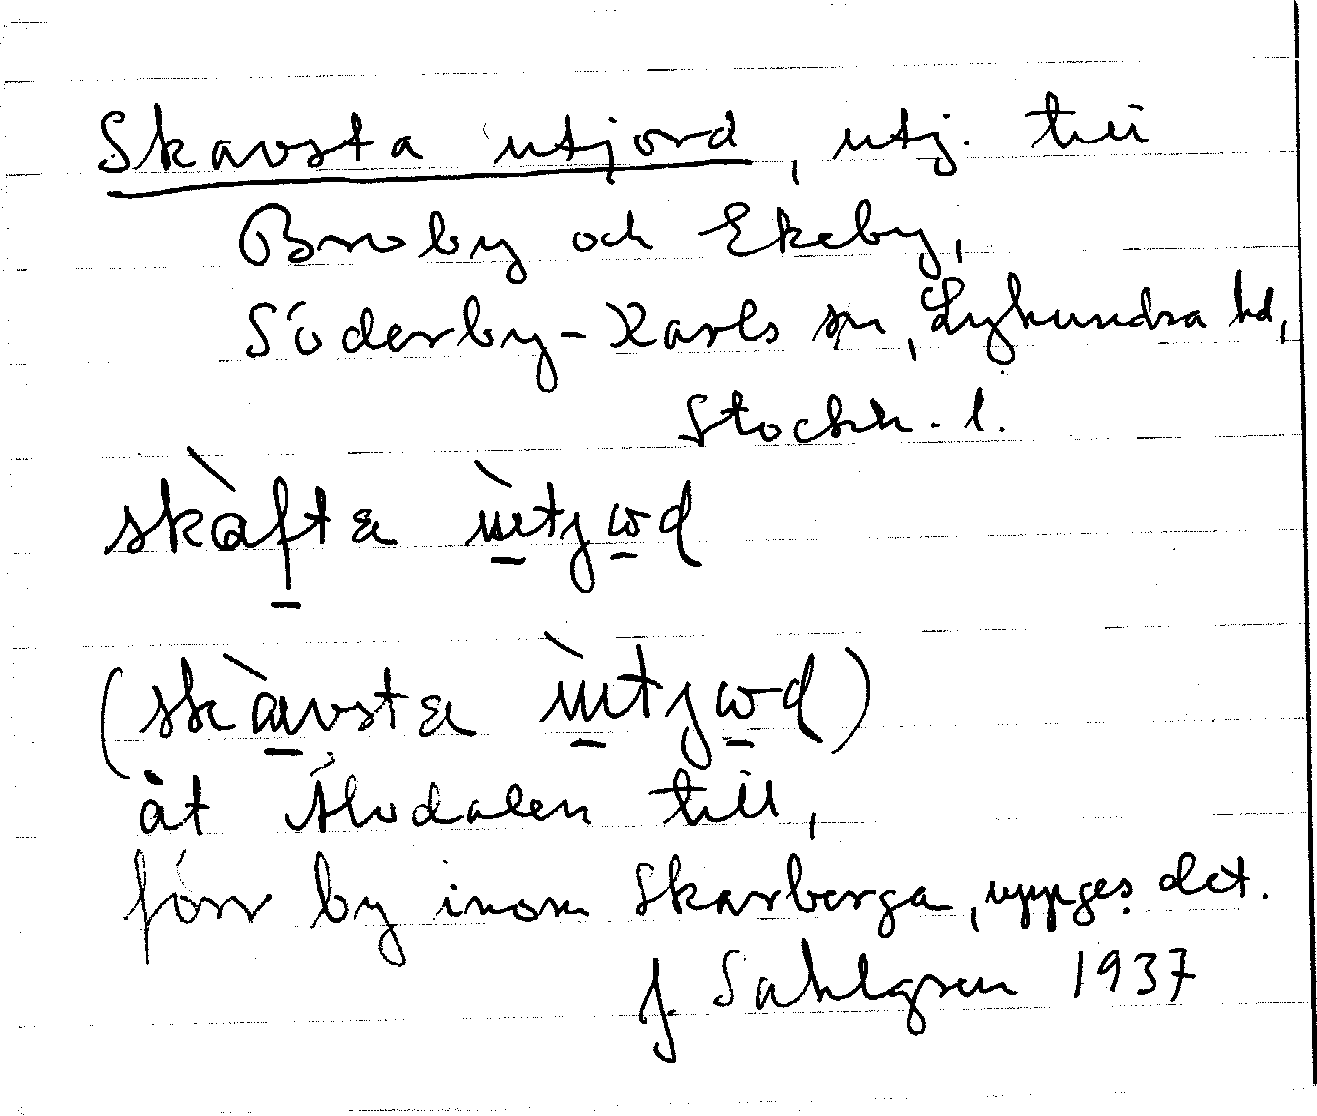 Skavsta utjord, utj. till
Broby och Ekeby,
Söderby-Karls sn, Lyhundra hd,
Stockh. l.
skàfta ùtjωd
(skàvsta ùtjωd)
åt Älvdalen till,
förr by inom Skarberga, uppges det.
J. Sahlgren 1937